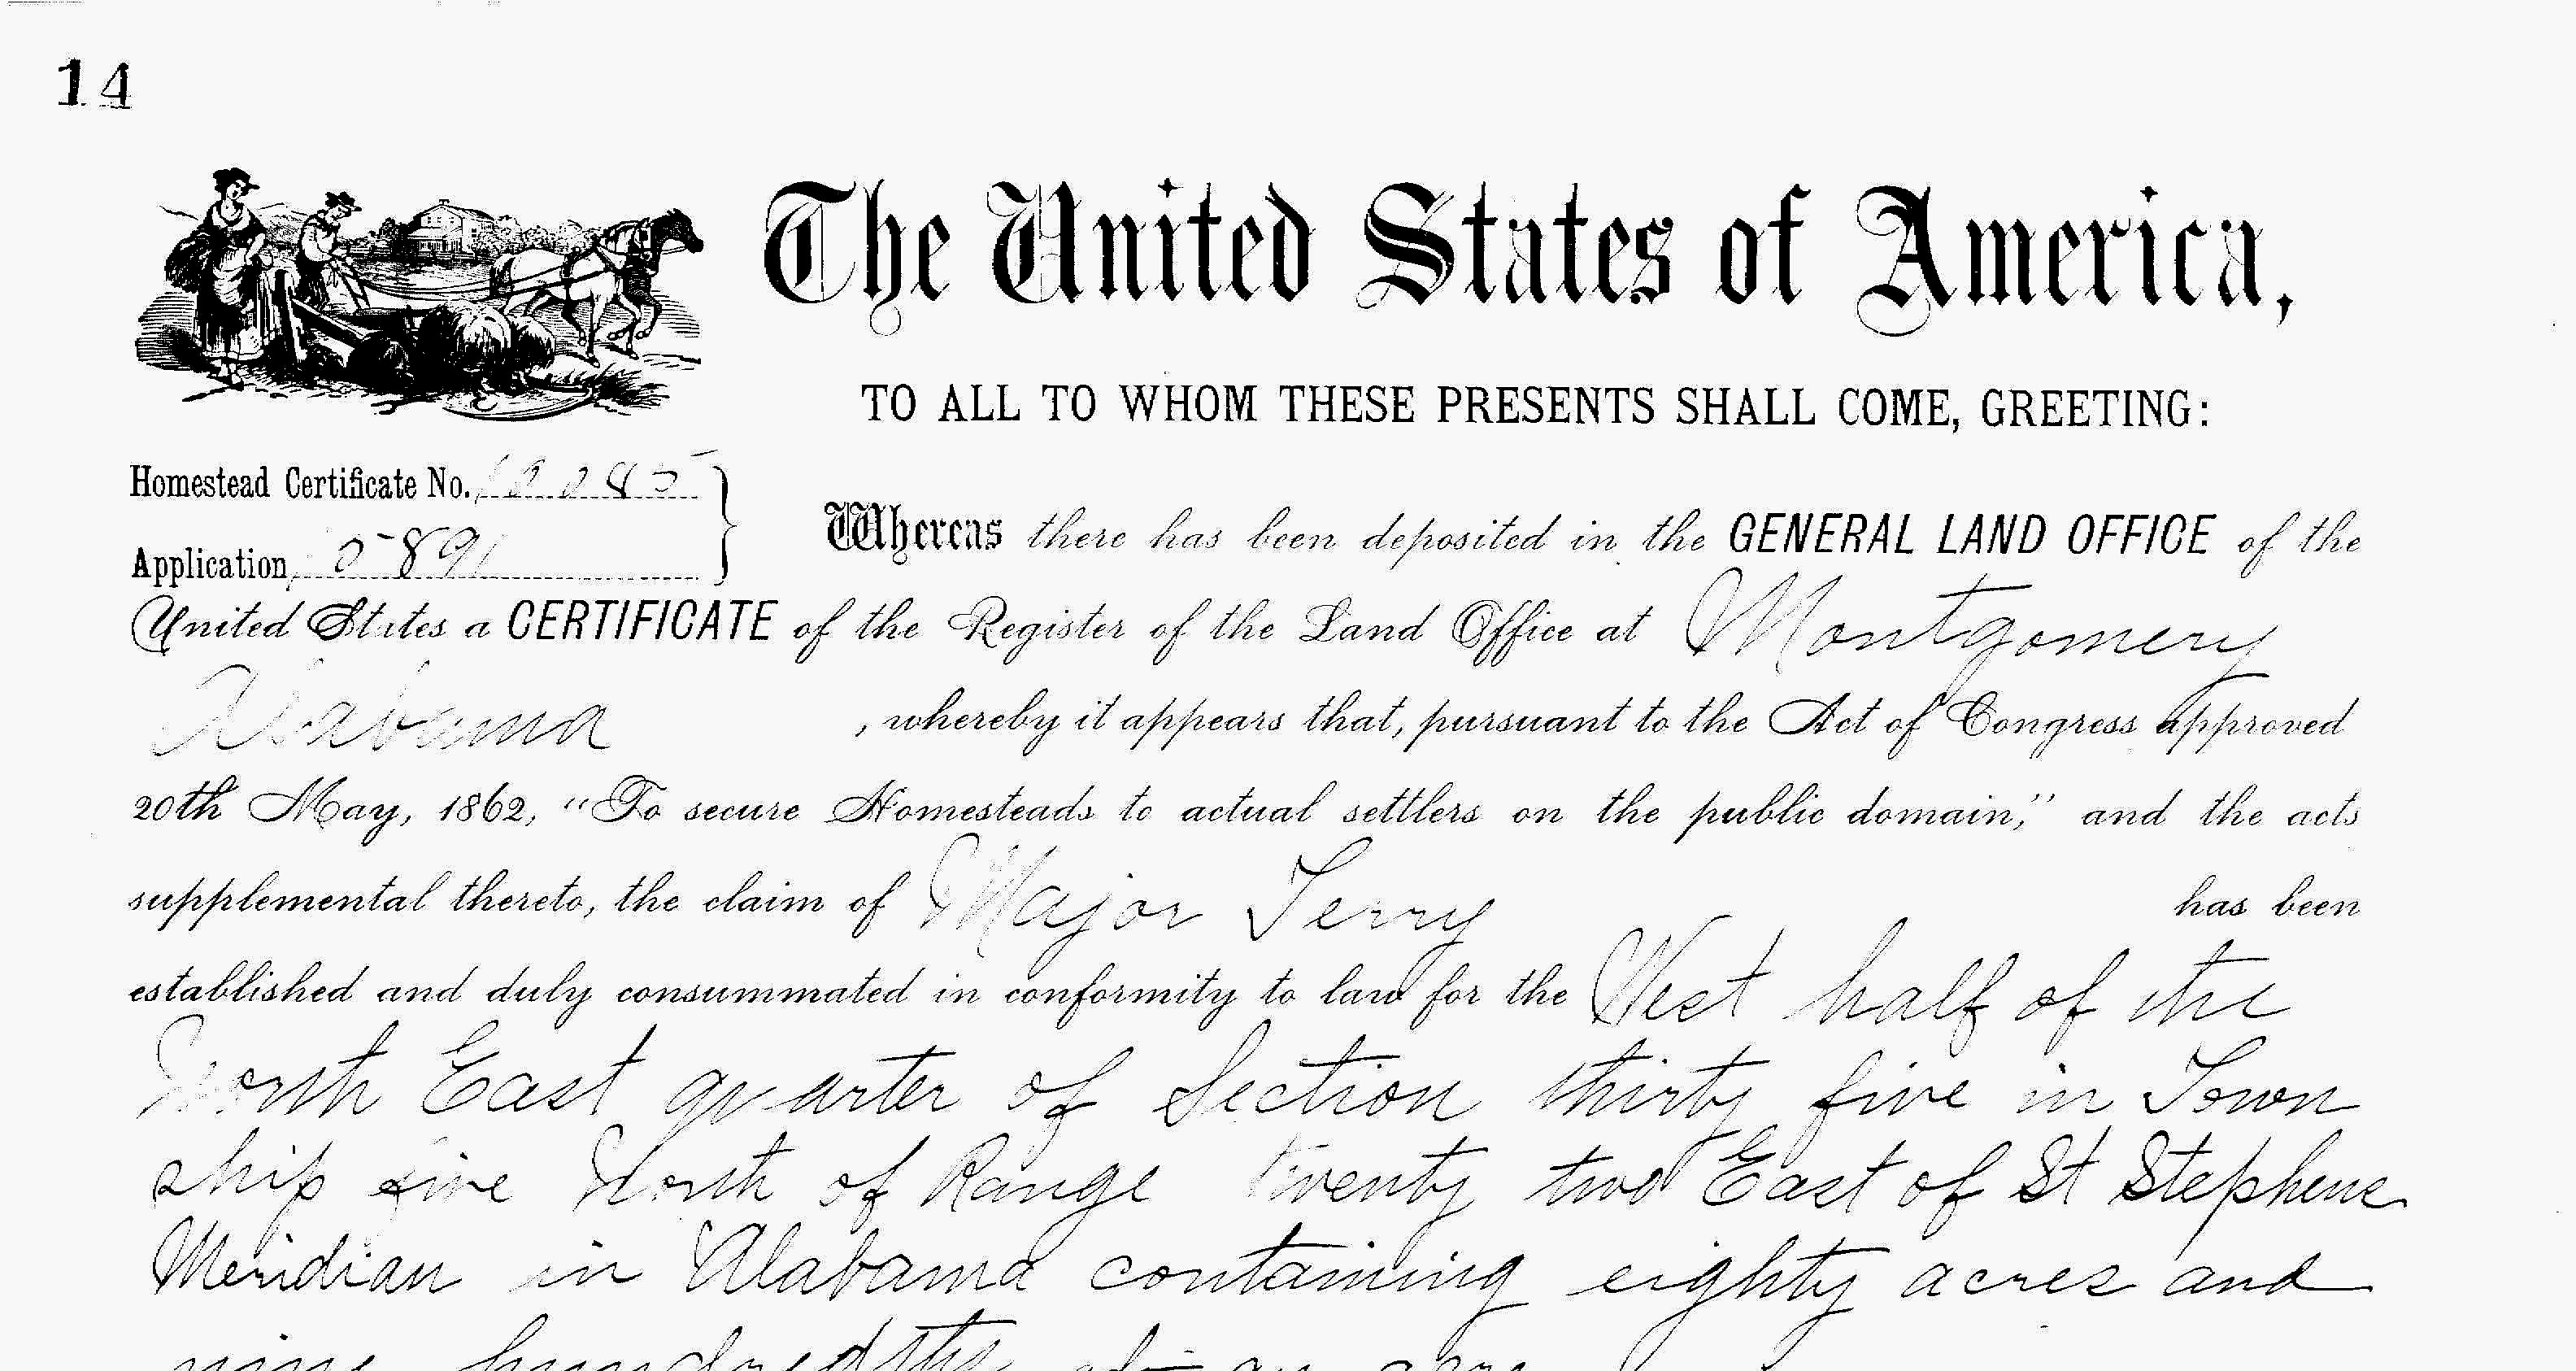 14
The United States of America,
TO ALL TO WHOM THESE PRESENTS SHALL COME, GREETING:
Homestead Certificate No.
Application 5891
Whereas there has been deposited in the GENERAL LAND OFFICE of the
United States a CERTIFICATE of the Register of the Land Office at Montgomery
Alabama , whereby it appears that, pursuant to the Act of Congress approved
20th May, 1862, "To secure Homesteads to actual settlers on the public domain," and the acts
supplemental thereto, the claim of Major Terry has been
established and duly consummated in conformity to law for the West half of the
North East quarter of Section thirty five in Town
ship five North of Range twenty two East of St Stephens
Meridian in Alabama containing eighty acres and
nine hundredths of an acre